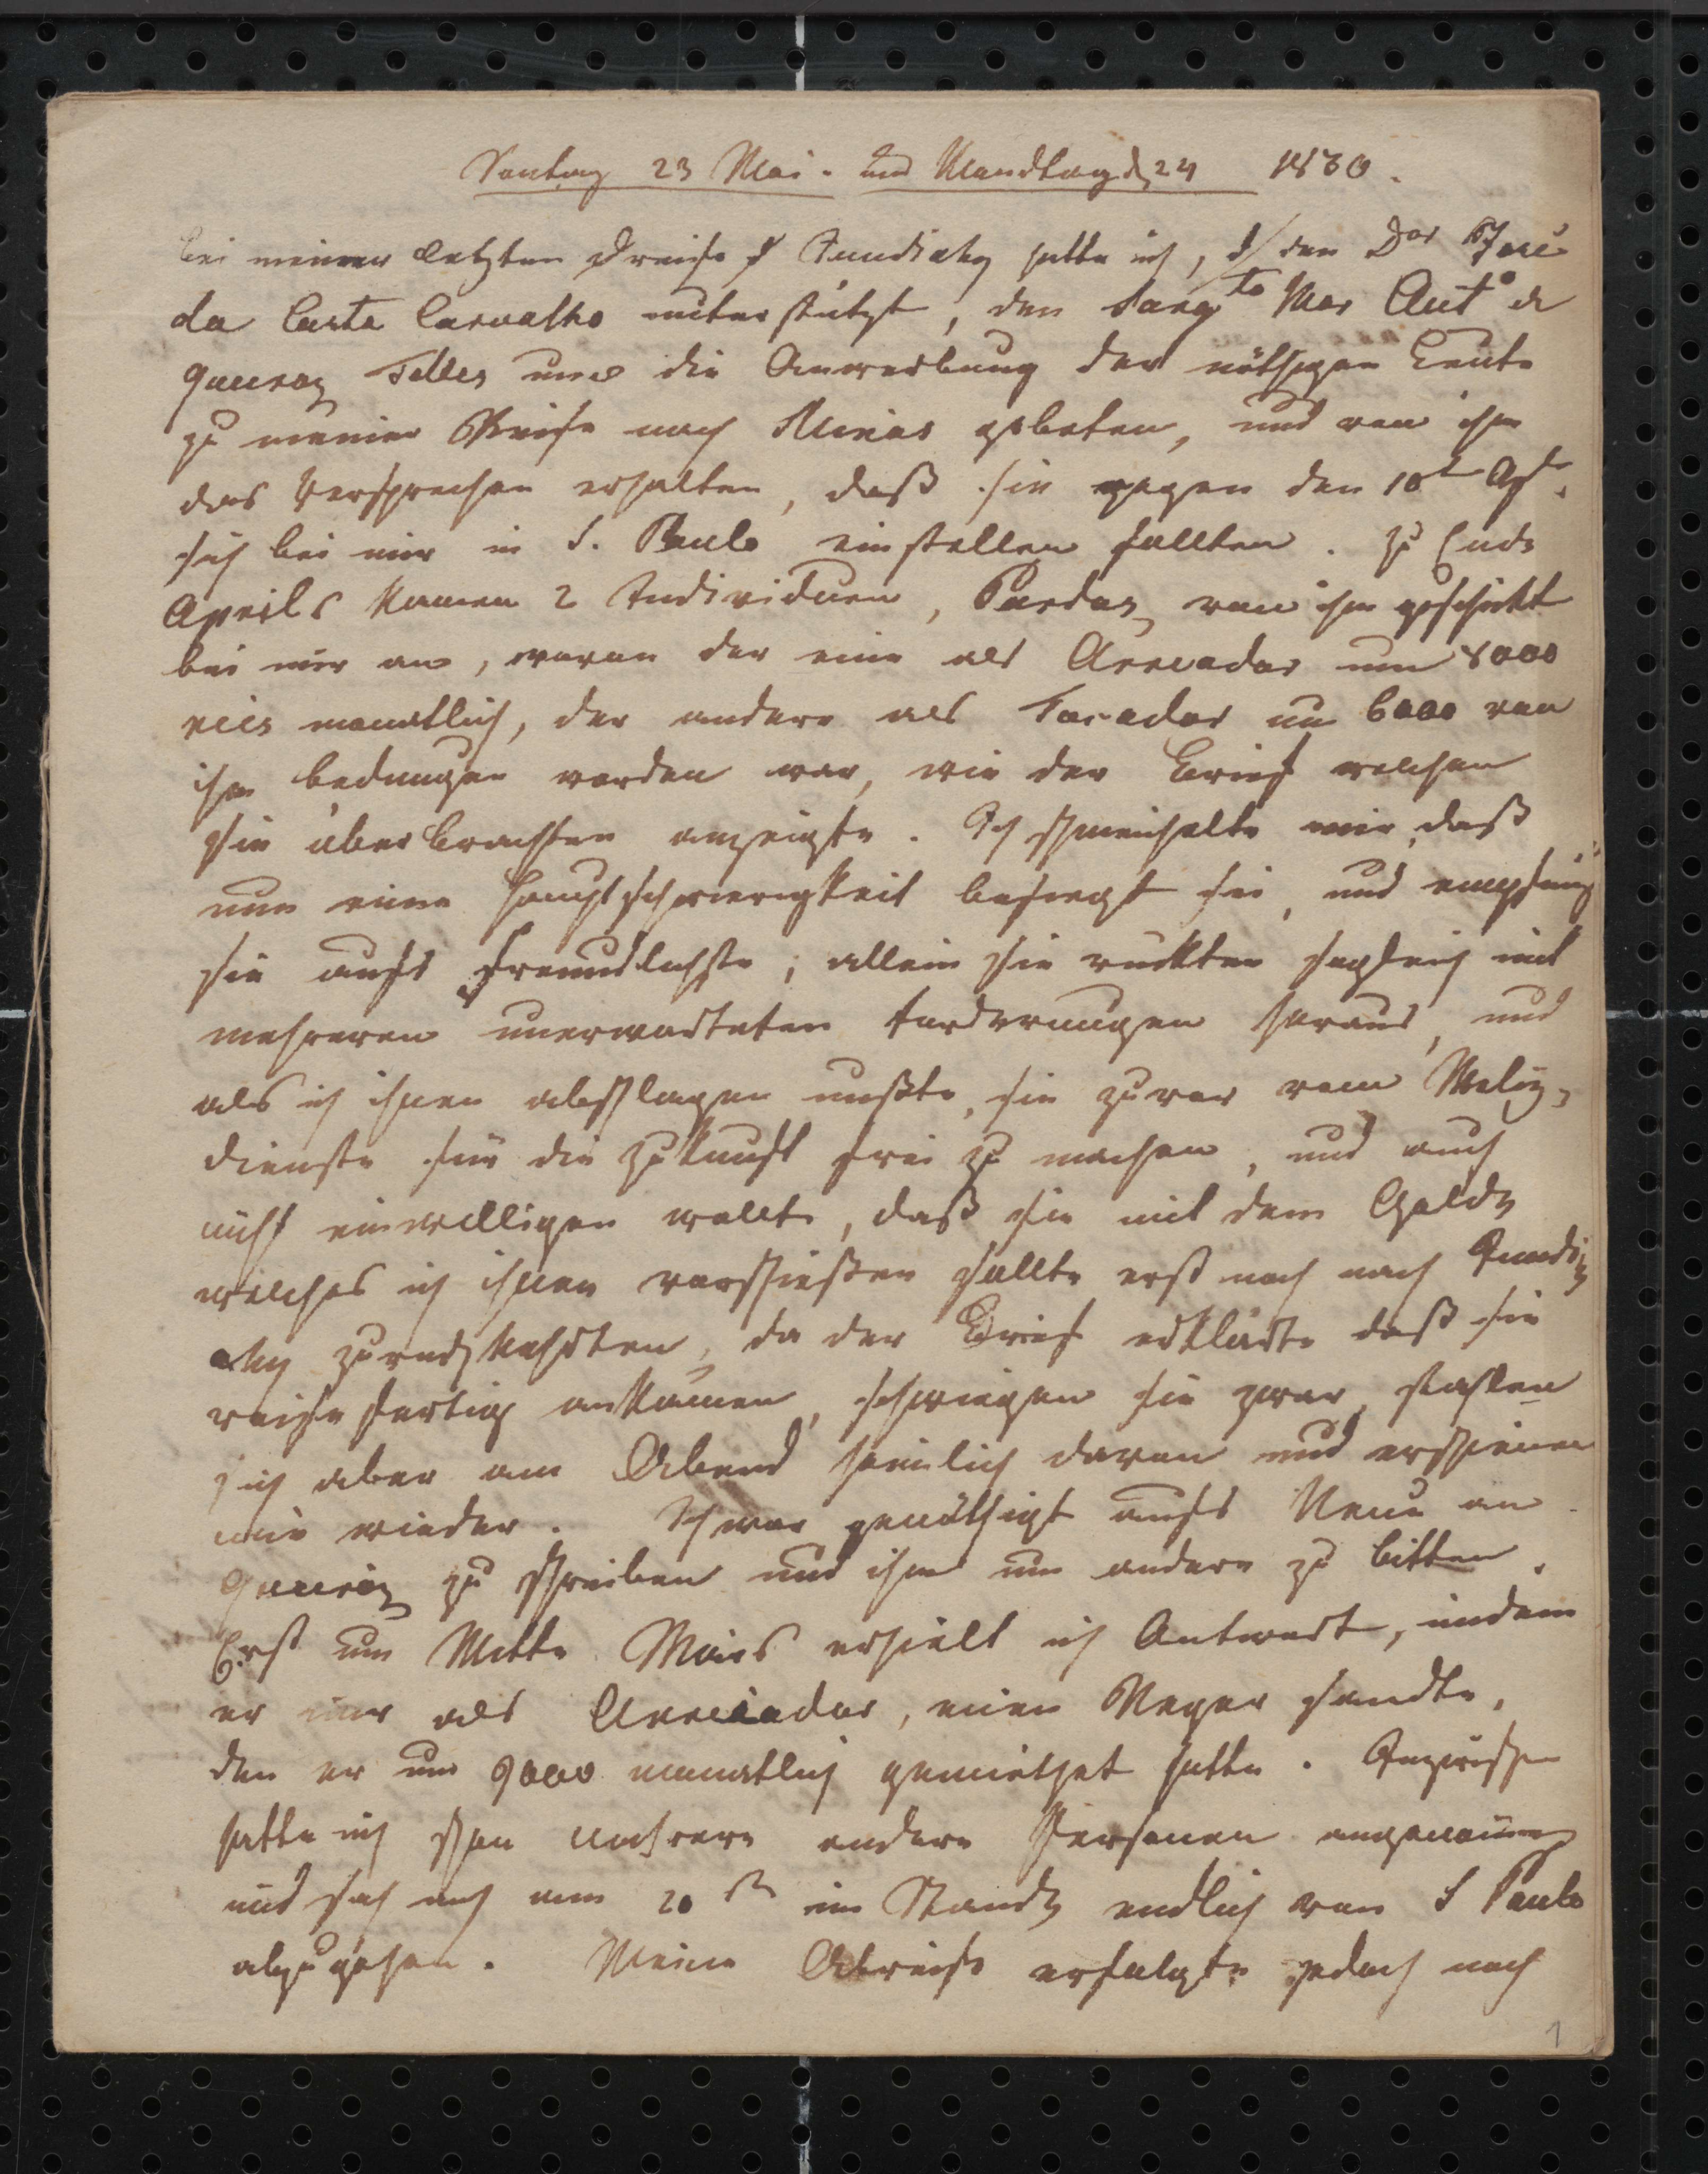 Sontag 23 Mai. und Mondtag d 24 1830.
bei meiner letzten Dreise Jundiahy hatte ich, d/ den Dor José
da Costa Carvalho unterstützt, den Sargto Mor Anto de
Queiroz Telles um die Anwerbung der nöthigen Leute
zu meiner Reise nach Minas gebeten, und von ihm
das Versprechen erhalten, daß sie gegen den 10t
sich bei mir in S. Paulo einstellen sollten. Zu Ende
Aprils kamen 2 Individuen, Pardos, von ihm geschickt
bei mir an, wovon der eine als Arreador um 8000
reis monatlich, der andere als Tocador um 6000 von
ihm bedungen worden war, wie der Brief welchen
sie überbrachten anzeigte. Ich schmeichelte mir, daß
nun eine Hauptschwierigkeit besiegt sei, und empfing
sie aufs freundlichste; allein sie rückten sogleich mit
mehreren unerwarteten Forderungen heraus, und
als ich ihnen abschlagen mußte, sie zuvor vom Miliz,
dienste für die Zukunft frei zu machen, und auch
nicht einwilligen wollte, daß sie mit dem Gelde
welches ich ihnen vorschießen sollte erst noch nach Jundi,
ahy zurück kehrten, da der Brief erklärte daß sie
reisefertig ankämen, schwiegen sie zwar, stahlen
sich aber am Abend heimlich davon und erschienen
nie wieder. Ich war genöthigt aufs Neue an
Queiroz zu schreiben und ihm um andere zu bitten.
Erst um Mitte Mais erhielt ich Antwort, indem
er mir als Arreador, einen Neger sandte,
den er um 9000 monatlich gemiethet hatte. Inzwischen
hatte ich schon mehrere andere Personen angenommen
und sah mich nun 20st im Stande endlich von S Paulo
abzugehen. Meine Abreise erfolgte jedoch noch
1